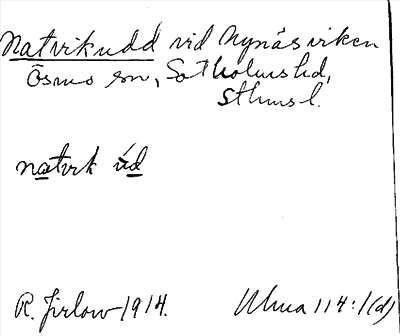 Natvikudd vid Nynäsviken
Ösmo sn, Sotholms hd,
Sthms l.
natvik úd
R. Jirlow 1914. Ulma 114:1(d)